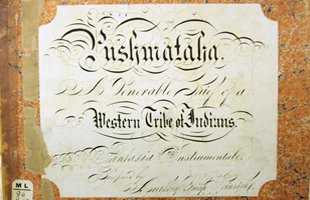 Pushmataha.
A Venerable Chief of a
Western Tribe of Indians.
Fantasia Instrumentale
Composed by
Anthony Philip Heinrich.
ML
96